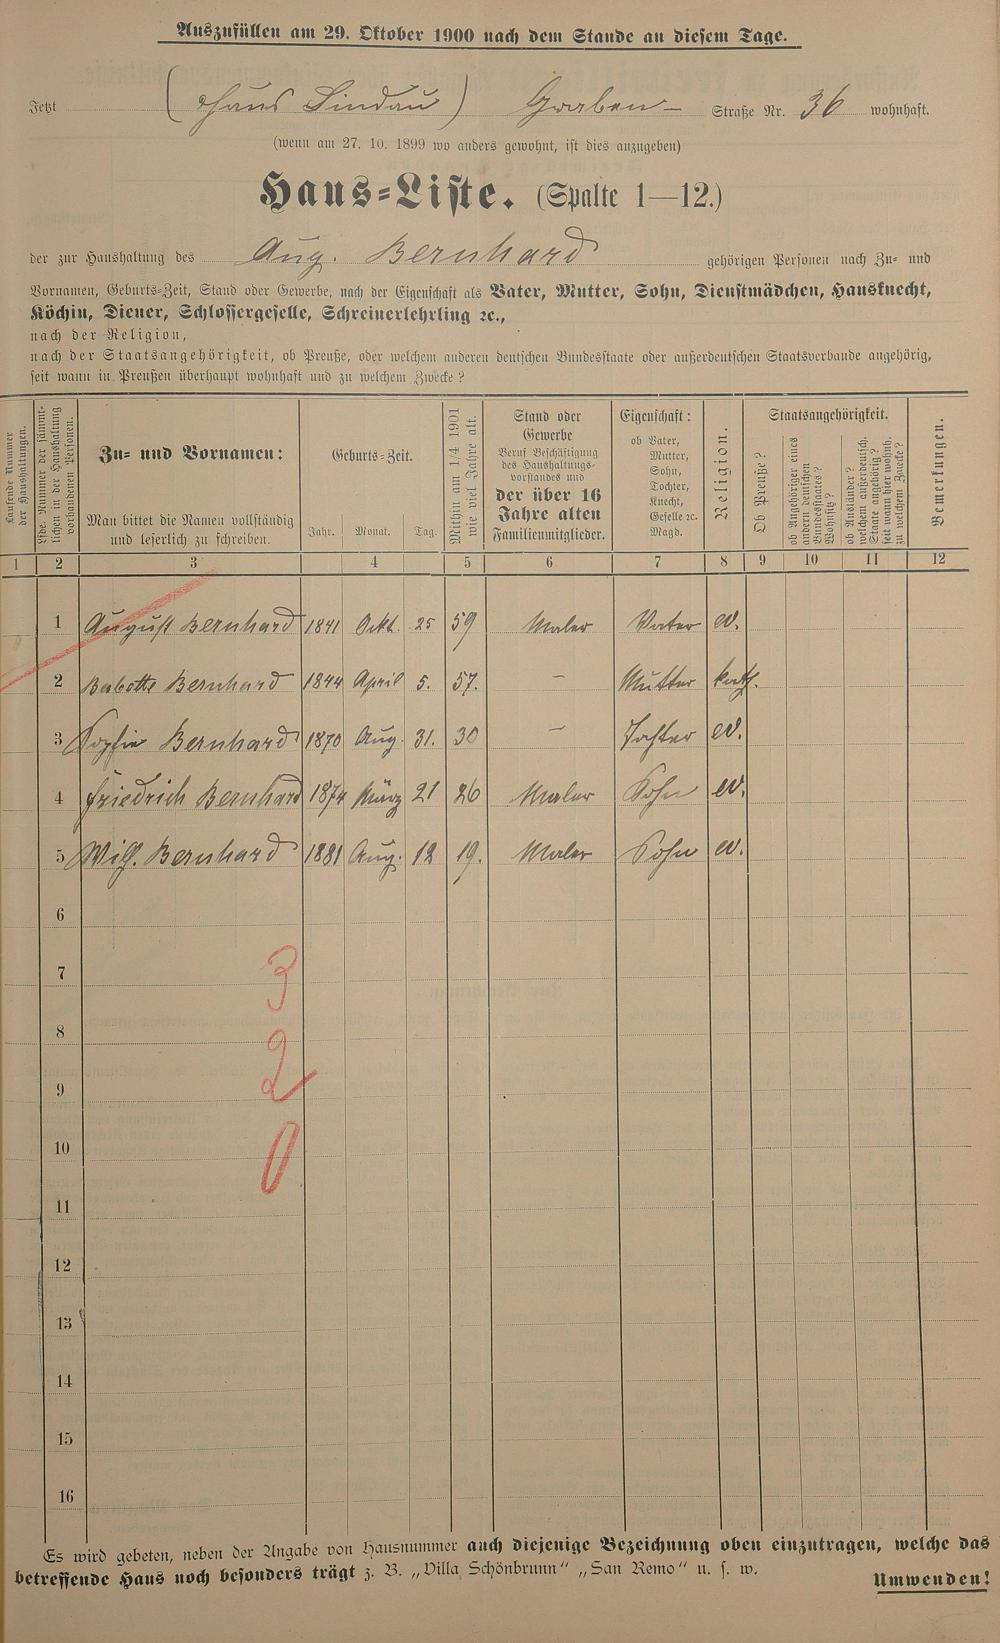 Auszufüllen am 29. Oktober 1900 nach dem Stande an diesem Tage.
Jetzt (Haus Lindau) Graben- Straße Nr. 36 wohnhaft.
(wenn am 27. 10. 1899 wo anders gewohnt, ist dies anzugeben)
Haus-Liste. (Spalte 1—12.)
der zur Haushaltung des Aug. Bernhard gehörigen Personen nach Zu- und
Vornamen, Geburts-Zeit, Stand oder Gewerbe, nach der Eigenschaft als Vater, Mutter, Sohn, Dienstmädchen, Hausknecht,
Köchin, Diener, Schlossergeselle, Schreinerlehrling ꝛc.,
nach der Religion,
nach der Staatsangehörigkeit, ob Preuße, oder welchem anderen deutschen Bundesstaate oder außerdeutschen Staatsverbande angehörig,
seit wann in Preußen überhaupt wohnhaft und zu welchem Zwecke?
Laufende Nummer
der Haushaltungen.
Lfde. Nummer der sämmt-
lichen in der Haushaltung
vorhandenen Personen.
Zu- und Vornamen:
Man bittet die Namen vollständig
und leserlich zu schreiben.
Geburts-Zeit.
Jahr. Monat. Tag.
Mithin am 1/4 1901
wie viel Jahre alt.
Stand oder
Gewerbe
Beruf Beschäftigung
des Haushaltungs-
vorstandes und
der über 16
Jahre alten
Familienmitglieder.
Eigenschaft:
ob Vater,
Mutter,
Sohn,
Tochter,
Knecht,
Geselle ꝛc.
Magd.
Religion.
Staatsangehörigkeit.
Ob Preuße?
ob Angehöriger eines
andern deutschen
Bundesstaates?
Wohnsitz?
ob Ausländer?
welchem außerdeutsch.
Staate angehörig?
seit wann hier wohnh.
zu welchem Zwecke?
Bemerkungen.
1 2 3 4 5 6 7 8 9 10 11 12
1 August Bernhard 1841 Okt. 25 59 Maler Vater ev.
2 Babette Bernhard 1844 April 5. 57. — Mutter kath.
3 Sophie Bernhard 1870 Aug. 31. 30 — Tochter ev.
4 Friedrich Bernhard 1874 März 21 26 Maler Sohn ev.
5 Wilh. Bernhard 1881 Aug. 12 19. Maler Sohn ev.
6
7 3
8
9 2
10 0
11
12
13
14
15
16
Es wird gebeten, neben der Angabe von Hausnummer auch diejenige Bezeichnung oben einzutragen, welche das
betreffende Haus noch besonders trägt z. B. „Villa Schönbrunn“ „San Remo“ u. s. w.
Umwenden!